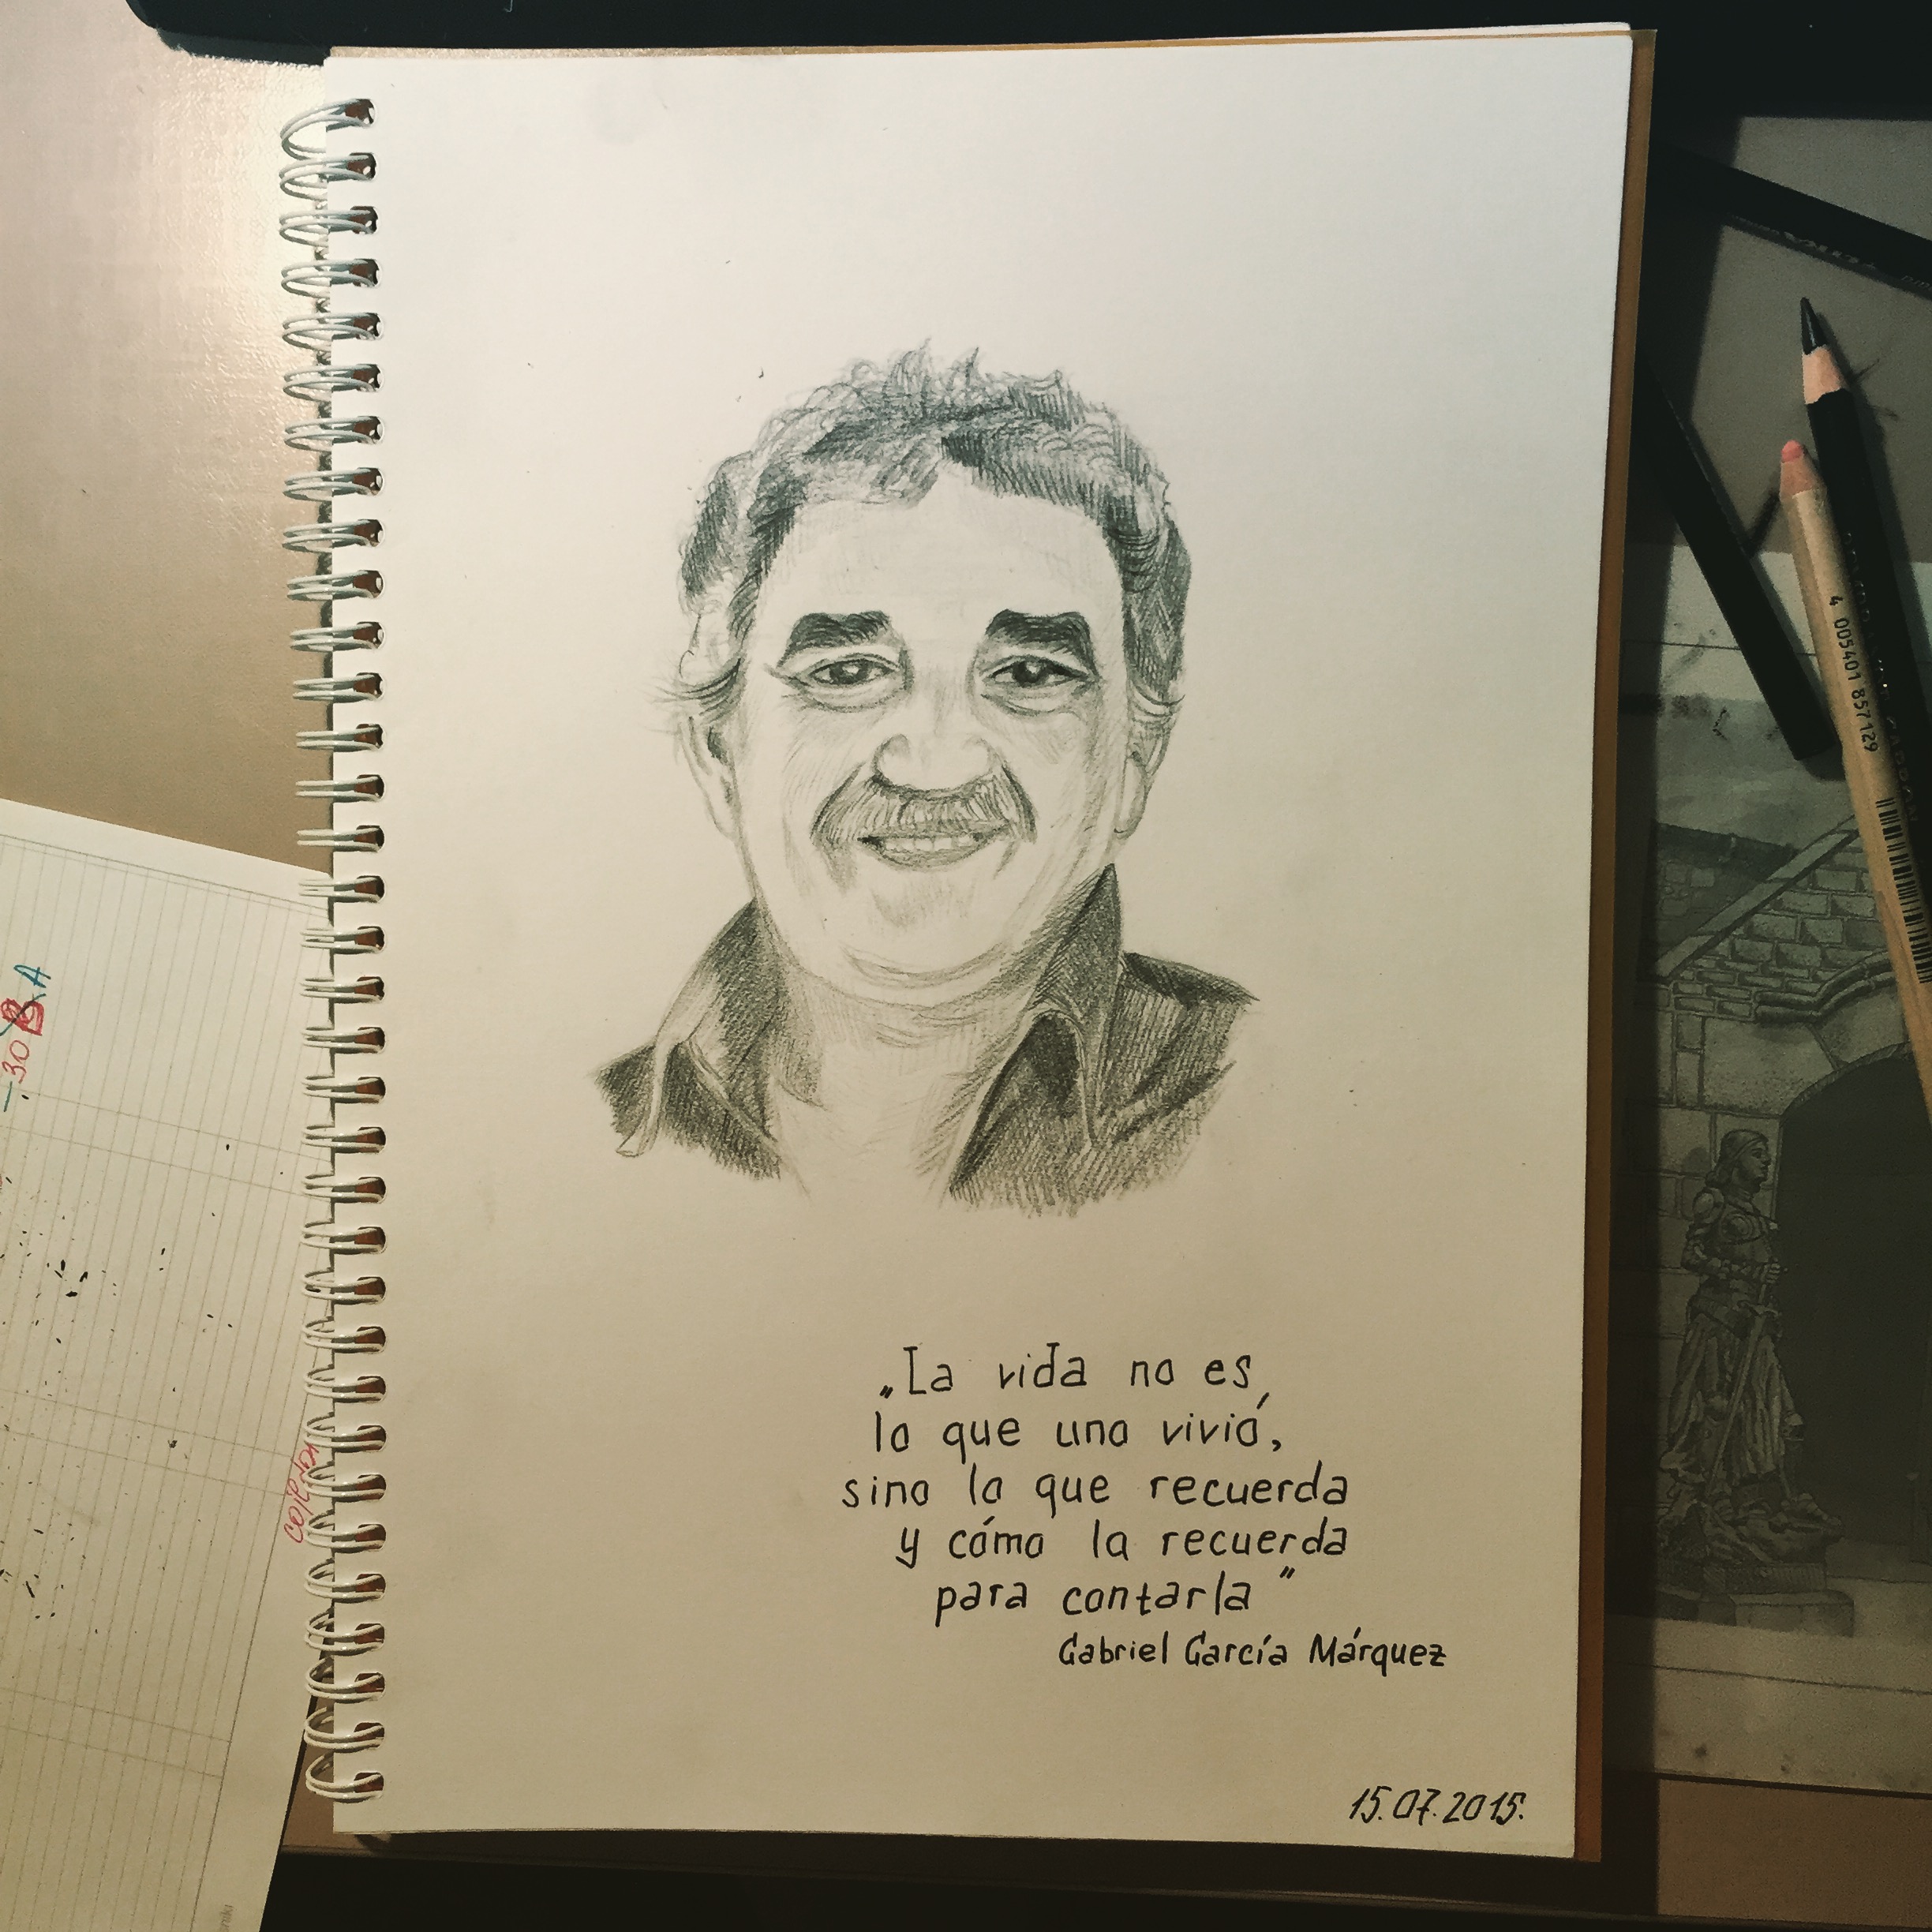 „La vida no es
lo que uno vivió,
sino lo que recuerda
y cómo la recuerda
para contarla"
Gabriel García Márquez
15.07.2015.
4 005401 857129
30 B A